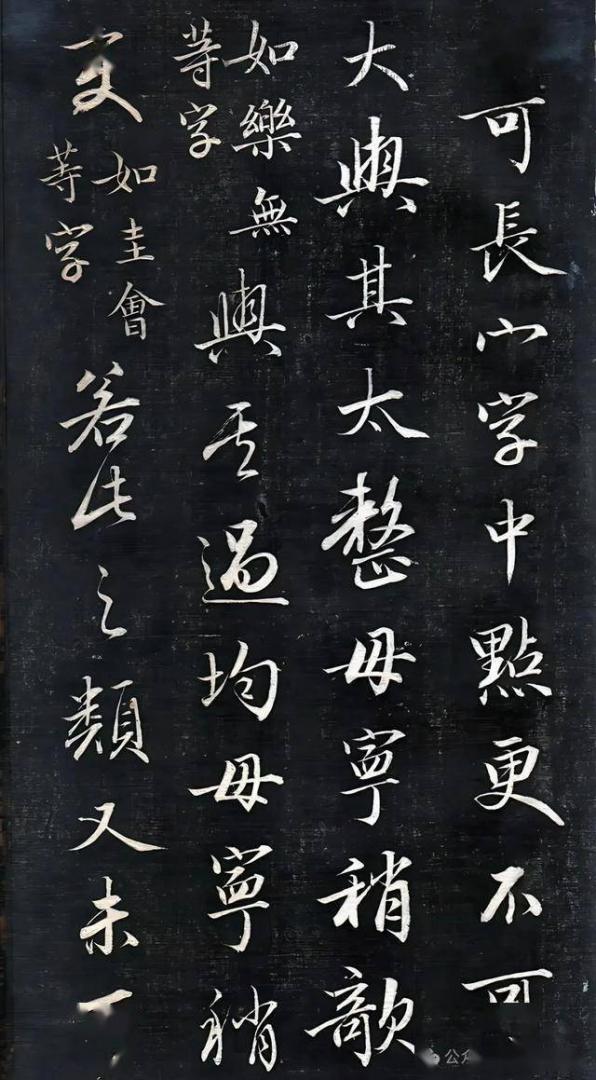 可長宀字中點更不可
大與其太整毋寧稍欹
如樂無
等字
與其過均毋寧稍
变
如圭會
等字
若此之類又未
公